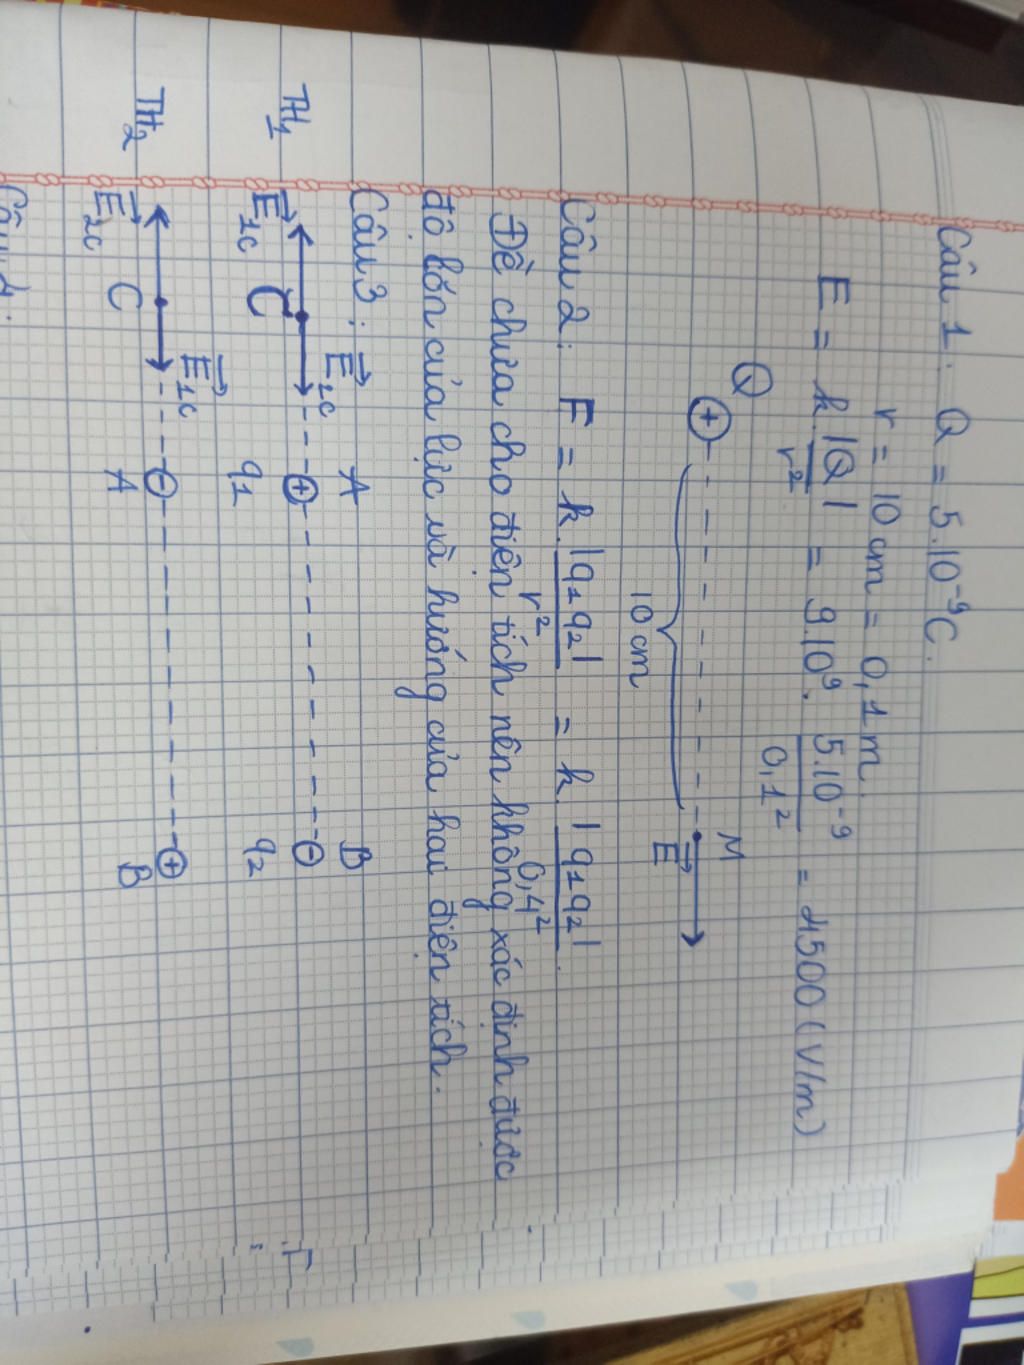 Câu 1. Q = 5.10⁻⁹C.
r = 10 cm = 0,1 m.
E = k.|Q|/r² = 9.10⁹. 5.10⁻⁹/0,1² = 4500 (V/m)
Q M
+
E→
10 cm
Câu 2: F = k.|q1q2|/r² = k. |q1q2|/0,4².
Đề chưa cho điện tích nên không xác định được
độ lớn của lực và hướng của hai điện tích.
Câu 3:
TH1 E→2c A B
C + -
E→1c q1 q2
TH2 E→1c
C - +
E→2c A B
Câu 4: